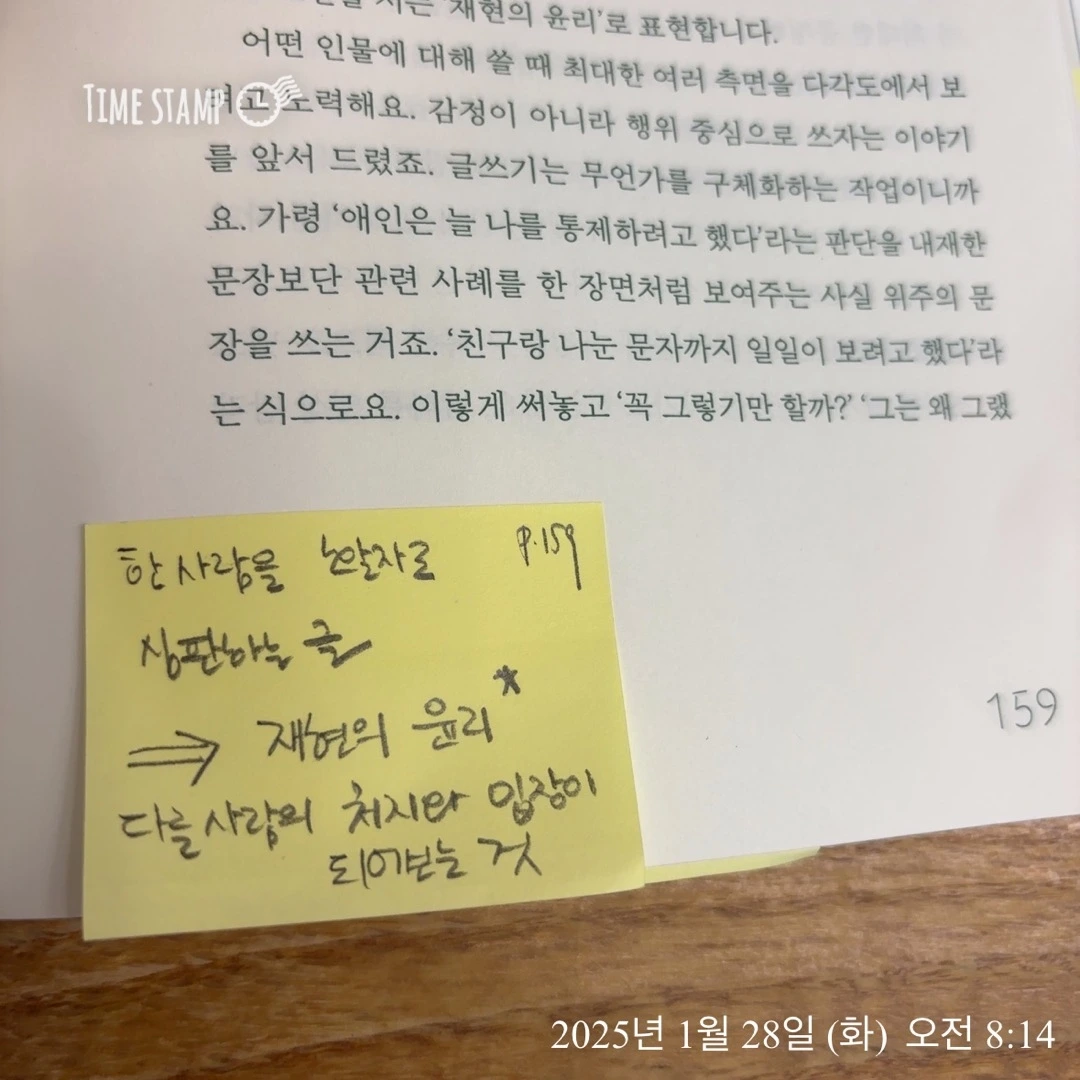 저는 '재현의 윤리'로 표현합니다.
어떤 인물에 대해 쓸 때 최대한 여러 측면을 다각도에서 보
려고 노력해요. 감정이 아니라 행위 중심으로 쓰자는 이야기
를 앞서 드렸죠. 글쓰기는 무언가를 구체화하는 작업이니까
요. 가령 '애인은 늘 나를 통제하려고 했다'라는 판단을 내재한
문장보단 관련 사례를 한 장면처럼 보여주는 사실 위주의 문
장을 쓰는 거죠. '친구랑 나눈 문자까지 일일이 보려고 했다'라
는 식으로요. 이렇게 써놓고 '꼭 그렇기만 할까?' '그는 왜 그랬
TIME STAMP
한 사람을 납작하게 p.159
심판하는 글
⇒ 재현의 윤리*
다른 사람의 처지와 입장이
되어보는 것
159
2025년 1월 28일 (화) 오전 8:14